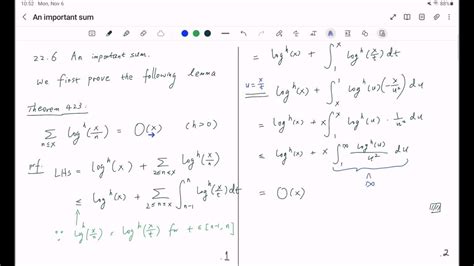 10:52 Mon, Nov 6
88%
An important sum
22.6 An important sum.
We first prove the following
lemma
Theorem 423:
∑_{n≤x} log^h(x/n) = O(x) (h>0)
pf: LHS = log^h(x) + ∑_{2≤n≤x} log^h(x/n)
≤ log^h(x) + ∑_{2≤n≤x} ∫_{n-1}^{n} log^h(x/t) dt
∵ log^h(x/n) ≤ log^h(x/t) for t ∈ [n-1, n]
.1
= log^h(x) + ∫_1^x log^h(x/t) dt
u = x/t
= log^h(x) + ∫_x^1 log^h(u) (-x/u²) du
= log^h(x) + x ∫_1^x log^h(u) · 1/u² du
≤ log^h(x) + x ∫_1^∞ log^h(u)/u² du
∧
∞
= O(x)
.2